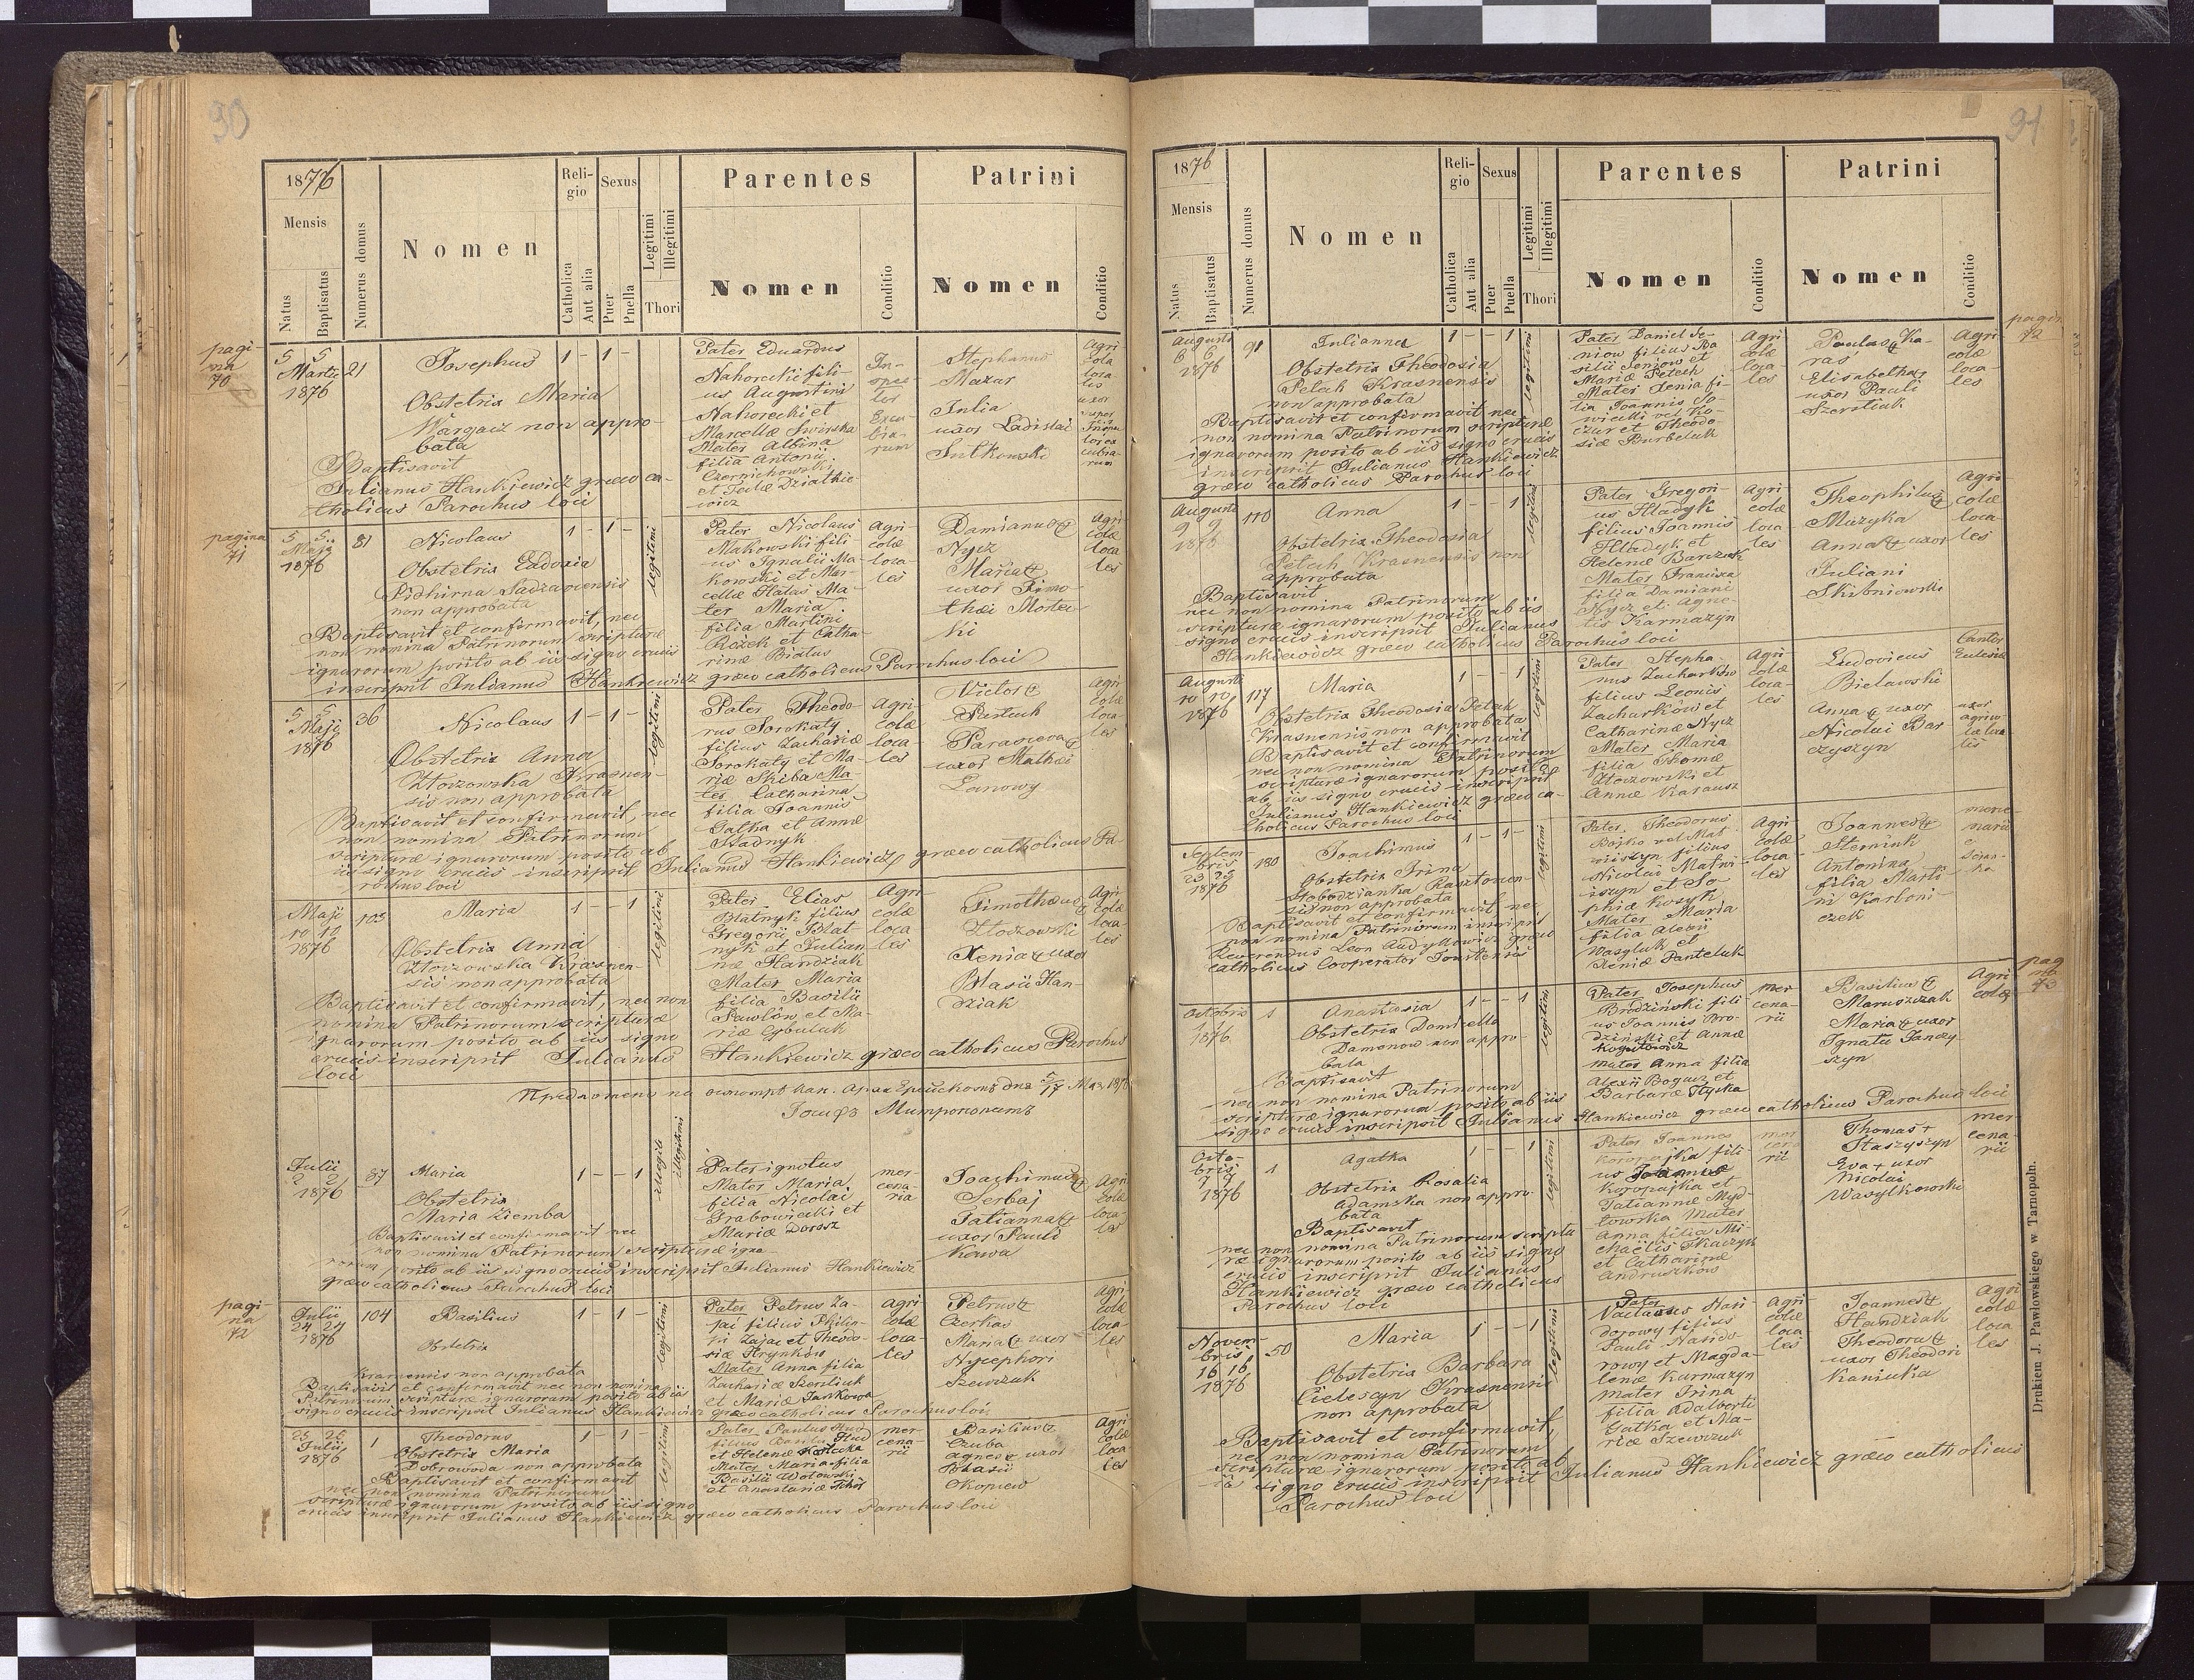 90
1876
Mensis
Natus
Baptisatus
Numerus domus
Nomen
Religio
Catholica
Aut alia
Sexus
Puer
Puella
Legitimi
Illegitimi
Thori
Parentes
Nomen
Conditio
Patrini
Nomen
Conditio
pagi-
na
70
5 5
Martii
1876
21
Josephus
1 - 1 -
Obstetrix Maria
non appro-
bata
Baptisavit
Julianus Hankiewicz graeco ca-
tholicus Parochus loci
Pater Eduardus
Nahorecki fili-
us Augustini
Nahorecki et
Marcellae Swirska
Mater Albina
filia Antonii
Czernichowski
et Teclae Dziatkie-
wicz
Stephanus
Mazar
Julia
uxor Ladislai
Sutkowski
Agri
cola
loca-
lis
uxor
pagina
71
5 5
Maji
1876
81
Nicolaus
1 - 1 -
legitimi
Obstetrix Eudoxia
Pidhirna
non approbata
Baptisavit et confirmavit, nec
non nomina Patrinorum scripturae
ignarorum posito ab iis signo crucis
inscripsit Julianus Hankiewicz graeco catholicus Parochus loci
Pater Nicolaus
Makowski fili-
us Ignatii Ma-
kowski et Mar-
cellae Hatas Ma-
ter Maria
filia Martini
Reżek et Catha-
rinae Biatus
Agri-
colae
loca-
les
Damianus
Nycz
Maria
uxor Timo-
thei
Agri
colae
loca
les
5 5
Maji
1876
36
Nicolaus
1 - 1 -
legitimi
Obstetrix Anna
Ztoczowska Krasnen-
sis non approbata
Baptisavit et confirmavit, nec
non nomina Patrinorum
scripturae ignarorum posito ab
iis signo crucis inscripsit Julianus Hankiewicz graeco catholicus Pa-
rochus loci
Pater Theodo-
rus Sorokaty
filius Zachariae
Sorokaty et Ma-
riae Skiba Ma-
ter Catharina
filia Joannis
Gatka et Annae
Stadnyk
Agri-
colae
loca-
les
Victor
Parasceva
uxor Mathei
Lanowy
Agri
colae
loca-
les
Maji
10 10
1876
103
Maria
1 - - 1
legitimi
Obstetrix Anna
Ztoczowska Krasnen-
sis non approbata
Baptisavit et confirmavit, nec non
nomina Patrinorum scripturae
ignarorum posito ab iis signo
crucis inscripsit Julianus Hankiewicz graeco catholicus Parochus
loci
Pater Elias
Blatnyk filius
Gregorii Blat
nyk et Julian-
nae Handziak
Mater Maria
filia Basilii
Pawlów et Ma-
riae Cybulak
Agri
colae
loca
les
Timotheus
Xenia uxor
Blasii Han-
dziak
Agri
colae
loca-
les
Julii
2 2
1876
87
Maria
1 - - 1
illegitimi
Obstetrix
Maria Ziemba
Baptisavit et confirmavit nec
non nomina Patrinorum scripturae igna-
rorum posito ab iis signo crucis inscripsit Julianus Hankiewicz
graeco catholicus Parochus loci
Pater ignotus
Mater Maria
filia Nicolai
Grabowiecki et
Mariae Darosz
mer-
cena-
ria
Joachimus
Serbaj
Tatianna
uxor Pauli
Kawa
Agri
colae
loca-
les
pagi-
na
72
Julii
24 24
1876
104
Basilius
1 - 1 -
legitimi
Obstetrix
Krasnensis non approbata
Baptisavit et confirmavit nec non nomina
Patrinorum scripturae ignarorum posito ab iis
signo crucis inscripsit Julianus Hankiewicz graeco catholicus Parochus loci
Pater Petrus Za-
jac filius Philip-
pi Zajac et Theodo-
siae Hrynków
Mater Anna filia
Zachariae
et Mariae Jankowa
Agri
colae
loca-
les
Petrus
Czerkas
Maria uxor
Nycephori
Szewczuk
Agri
colae
loca
les
25 26
Julii
1876
1
Theodorus
1 - 1 -
legitimi
Obstetrix Maria
Dobrowoda non approbata
Baptisavit et confirmavit
nec non nomina Patrinorum
scripturae ignarorum, posito ab iis signo
crucis inscripsit Julianus Hankiewicz graeco catholicus Parochus loci
Pater Paulus
filius Basilii
et Helenae
Mater Maria filia
Basilii
et Anastasiae
mer
cena-
rii
Basilius
Czuba
Agnes uxor
Blasii
Agri
colae
loca
les
91
1876
Mensis
Natus
Baptisatus
Numerus domus
Nomen
Religio
Catholica
Aut alia
Sexus
Puer
Puella
Legitimi
Illegitimi
Thori
Parentes
Nomen
Conditio
Patrini
Nomen
Conditio
pagina
72
Augusti
6 6
1876
91
Julianna
1 - - 1
legitimi
Obstetrix Theodosia
Petech Krasnensis
non approbata
Baptisavit et confirmavit nec
non nomina Patrinorum scripturae
ignarorum posito ab iis signo crucis
inscripsit Julianus Hankiewicz
graeco catholicus Parochus loci
Pater Daniel Se-
niow filius Ba
silii Seniow et
Mariae Petech
Mater Xenia fi-
lia Joannis So-
wicki vel Ko-
czur et Theodo-
siae Burbeluk
Agri
colae
loca-
les
Paulus Ka-
ras
Elisabetha
uxor Pauli
Szerstiuk
Agri
colae
loca-
les
Augusti
9 9
1876
110
Anna
1 - - 1
legitimi
Obstetrix Theodosia
Petech Krasnensis non
approbata
Baptisavit
nec non nomina Patrinorum
scripturae ignarorum posito ab iis
signo crucis inscripsit Julianus
Hankiewicz graeco catholicus Parochus loci
Pater Gregori-
us Hladyk
filius Joannis
Hladyk et
Helenae Barczuk
Mater Francisca
filia Damiani
Nycz et Agne-
tis Karmazyn
Agri
colae
loca-
les
Theophilus
Muzyka
Anna uxor
Juliani
Skibniowski
Agri
colae
loca-
les
Augusti
10 10
1876
117
Maria
1 - - 1
legitimi
Obstetrix Theodosia Petech
Krasnensis non approbata
Baptisavit et confirmavit
nec non nomina Patrinorum
scripturae ignarorum posito
ab iis signo crucis inscripsit
Julianus Hankiewicz graeco ca-
tholicus Parochus loci
Pater Stepha-
nus Zacharków
filius Leonis
Zacharków et
Catharinae Nycz
Mater Maria
filia Thomae
Ztoczowski et
Annae Karausz
Agri
colae
loca-
les
Ludovicus
Bielawski
Anna uxor
Nicolai Bar
czyszyn
Cantor
Ecclesiae
uxor
agrico-
lae loca-
lis
Septem
bris
23 23
1876
180
Joachimus
1 - 1 -
legitimi
Obstetrix Irina
non approbata
Baptisavit et confirmavit, nec
non nomina Patrinorum inscripsit
Reverendus Leon graeco
catholicus Cooperator
Pater Theodorus
Bojko vel Mat
wiiszyn filius
Nicolai Matwi-
iszyn et So-
phiae Kosyk
Mater Maria
filia Alexii
Wasyluk et
Xeniae Panteluk
Agri
colae
loca-
les
Joannes
Antonina
filia Marti-
ni
pag
na
73
Octobris
1876
1
Anastasia
1 - - 1
legitimi
Obstetrix Domicella
Damenow non appro-
bata
Baptisavit
nec non nomina Patrinorum
scripturae ignarorum posito ab iis
signo crucis inscripsit Julianus Hankiewicz graeco catholicus Parochus loci
Pater Josephus
Brodziński fili
us Joannis Bro-
dziński et Annae
mater Anna filia
Alexii Bogucz et
Barbarae
mer
cena-
rii
Basilius
Maruszczak
Maria uxor
Ignatii Jandy-
szyn
Agri
colae
Octo-
bris
7 9
1876
1
Agatha
1 - - 1
legitimi
Obstetrix Rosalia
Adamska non appro-
bata
Baptisavit
nec non nomina Patrinorum scriptu
rae ignarorum posito ab iis signo
crucis inscripsit Julianus
Hankiewicz graeco catholicus
Parochus loci
Pater Joannes
Koropajka fili-
us Joannis
Koropajka et
Tatiannae Myd-
towska Mater
Anna filia Mi-
chaëlis Tkaczyk
et Catharinae
Andruszków
mer
cena
rii
Thomas +
Staszyszyn
Eva + uxor
Nicolai
Wasylkowski
mer
cena-
rii
Novem-
bris
16 16
1876
50
Maria
1 - - 1
legitimi
Obstetrix Barbara
Krasnensis
non approbata
Baptisavit et confirmavit,
nec non nomina Patrinorum
scripturae ignarorum posito ab
iis signo crucis inscripsit Julianus Hankiewicz graeco catholicus
Parochus loci
Pater
dorowy filius
Pauli
rowy et Magda-
lenae Karmazyn
mater Irina
filia Adalberti
Gatka et Ma-
riae Szewczuk
Agri
colae
loca-
les
Joannes
Handziak
Theodora
uxor Theodori
Kaniuka
Agri
colae
loca
les
Drukiem J. Pawlowskiego w Tarnopolu.